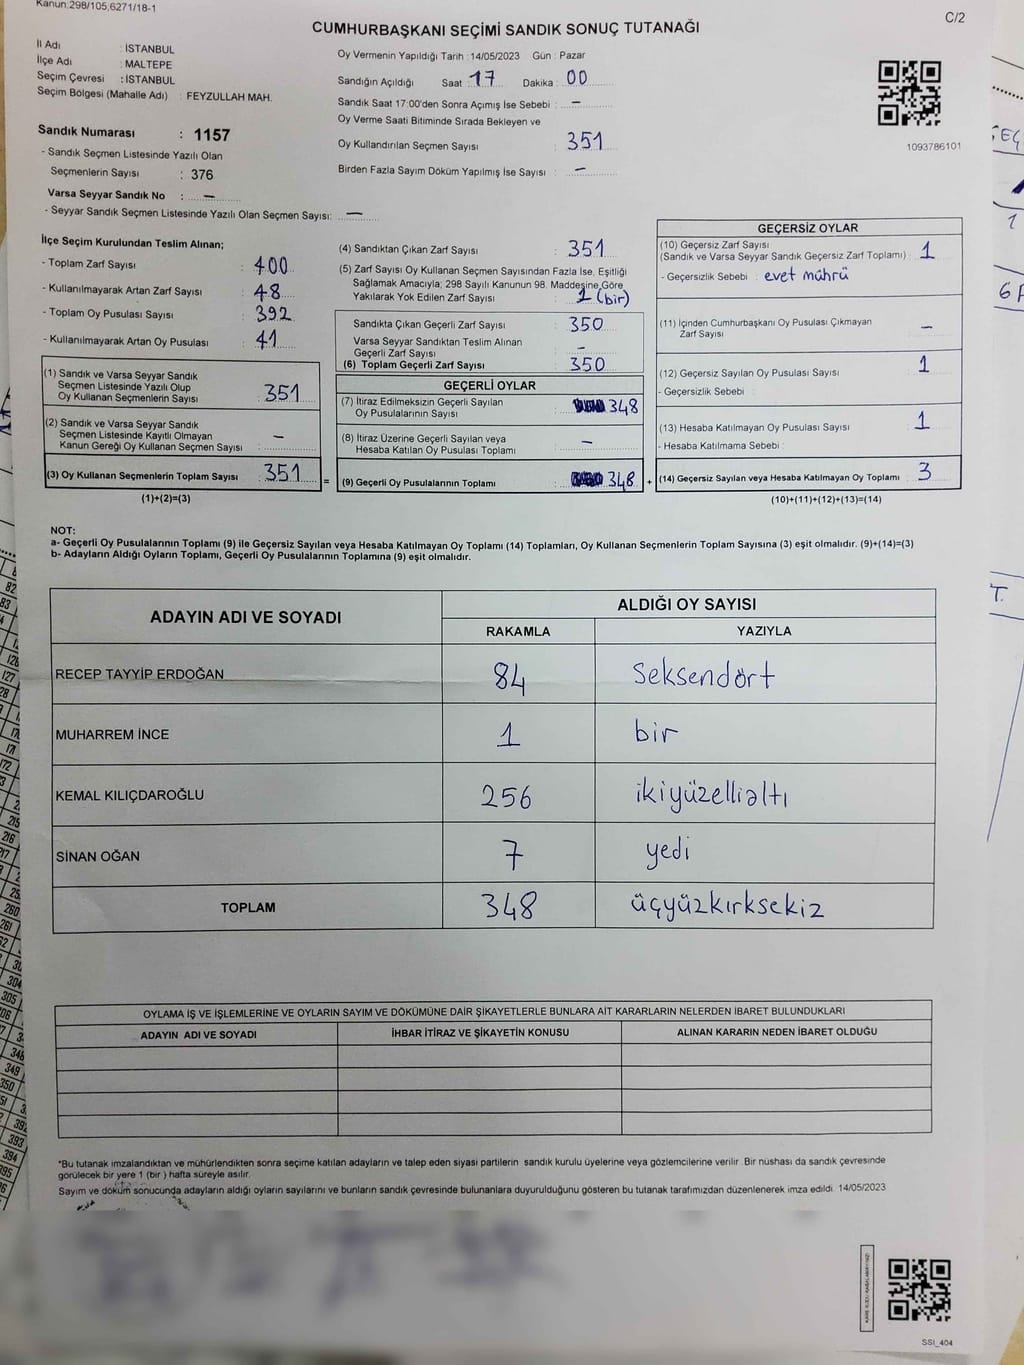 Kanun:298/105,6271/18-1
C/2
CUMHURBAŞKANI SEÇİMİ SANDIK SONUÇ TUTANAĞI
İl Adı : İSTANBUL
İlçe Adı : MALTEPE
Seçim Çevresi : İSTANBUL
Seçim Bölgesi (Mahalle Adı) : FEYZULLAH MAH.
Sandık Numarası : 1157
- Sandık Seçmen Listesinde Yazılı Olan
Seçmenlerin Sayısı : 376
Varsa Seyyar Sandık No : –
- Seyyar Sandık Seçmen Listesinde Yazılı Olan Seçmen Sayısı: –
Oy Vermenin Yapıldığı Tarih : 14/05/2023 Gün : Pazar
Sandığın Açıldığı Saat 17 Dakika : 00
Sandık Saat 17:00'den Sonra Açımış İse Sebebi : –
Oy Verme Saati Bitiminde Sırada Bekleyen ve
Oy Kullandırılan Seçmen Sayısı : 351
Birden Fazla Sayım Döküm Yapılmış İse Sayısı : –
1093786101
İlçe Seçim Kurulundan Teslim Alınan;
- Toplam Zarf Sayısı : 400
- Kullanılmayarak Artan Zarf Sayısı : 48
- Toplam Oy Pusulası Sayısı : 392
- Kullanılmayarak Artan Oy Pusulası : 41
(1) Sandık ve Varsa Seyyar Sandık
Seçmen Listesinde Yazılı Olup
Oy Kullanan Seçmenlerin Sayısı : 351
(2) Sandık ve Varsa Seyyar Sandık
Seçmen Listesinde Kayıtlı Olmayan
Kanun Gereği Oy Kullanan Seçmen Sayısı : –
(3) Oy Kullanan Seçmenlerin Toplam Sayısı : 351
(1)+(2)=(3)
(4) Sandıktan Çıkan Zarf Sayısı : 351
(5) Zarf Sayısı Oy Kullanan Seçmen Sayısından Fazla İse, Eşitliği
Sağlamak Amacıyla; 298 Sayılı Kanunun 98. Maddesine Göre
Yakılarak Yok Edilen Zarf Sayısı : 1 (bir)
Sandıkta Çıkan Geçerli Zarf Sayısı : 350
Varsa Seyyar Sandıktan Teslim Alınan
Geçerli Zarf Sayısı : –
(6) Toplam Geçerli Zarf Sayısı : 350
GEÇERLİ OYLAR
(7) İtiraz Edilmeksizin Geçerli Sayılan
Oy Pusulalarının Sayısı : 348
(8) İtiraz Üzerine Geçerli Sayılan veya
Hesaba Katılan Oy Pusulası Toplamı : –
= (9) Geçerli Oy Pusulalarının Toplamı : 348 +
GEÇERSİZ OYLAR
(10) Geçersiz Zarf Sayısı
(Sandık ve Varsa Seyyar Sandık Geçersiz Zarf Toplamı) : 1
- Geçersizlik Sebebi : evet mührü
(11) İçinden Cumhurbaşkanı Oy Pusulası Çıkmayan
Zarf Sayısı –
(12) Geçersiz Sayılan Oy Pusulası Sayısı : 1
- Geçersizlik Sebebi :
(13) Hesaba Katılmayan Oy Pusulası Sayısı : 1
- Hesaba Katılmama Sebebi :
(14) Geçersiz Sayılan veya Hesaba Katılmayan Oy Toplamı : 3
(10)+(11)+(12)+(13)=(14)
NOT:
a- Geçerli Oy Pusulalarının Toplamı (9) ile Geçersiz Sayılan veya Hesaba Katılmayan Oy Toplamı (14) Toplamları, Oy Kullanan Seçmenlerin Toplam Sayısına (3) eşit olmalıdır. (9)+(14)=(3)
b- Adayların Aldığı Oyların Toplamı, Geçerli Oy Pusulalarının Toplamına (9) eşit olmalıdır.
ADAYIN ADI VE SOYADI ALDIĞI OY SAYISI
RAKAMLA YAZIYLA
RECEP TAYYİP ERDOĞAN 84 seksendört
MUHARREM İNCE 1 bir
KEMAL KILIÇDAROĞLU 256 ikiyüzellialtı
SİNAN OĞAN 7 yedi
TOPLAM 348 üçyüzkırksekiz
OYLAMA İŞ VE İŞLEMLERİNE VE OYLARIN SAYIM VE DÖKÜMÜNE DAİR ŞİKAYETLERLE BUNLARA AİT KARARLARIN NELERDEN İBARET BULUNDUKLARI
ADAYIN ADI VE SOYADI İHBAR İTİRAZ VE ŞİKAYETİN KONUSU ALINAN KARARIN NEDEN İBARET OLDUĞU
*Bu tutanak imzalandıktan ve mühürlendikten sonra seçime katılan adayların ve talep eden siyasi partilerin sandık kurulu üyelerine veya gözlemcilerine verilir. Bir nüshası da sandık çevresinde
görülecek bir yere 1 (bir ) hafta süreyle asılır.
Sayım ve döküm sonucunda adayların aldığı oyların sayılarını ve bunların sandık çevresinde bulunanlara duyurulduğunu gösteren bu tutanak tarafımızdan düzenlenerek imza edildi. 14/05/2023
SSI_404